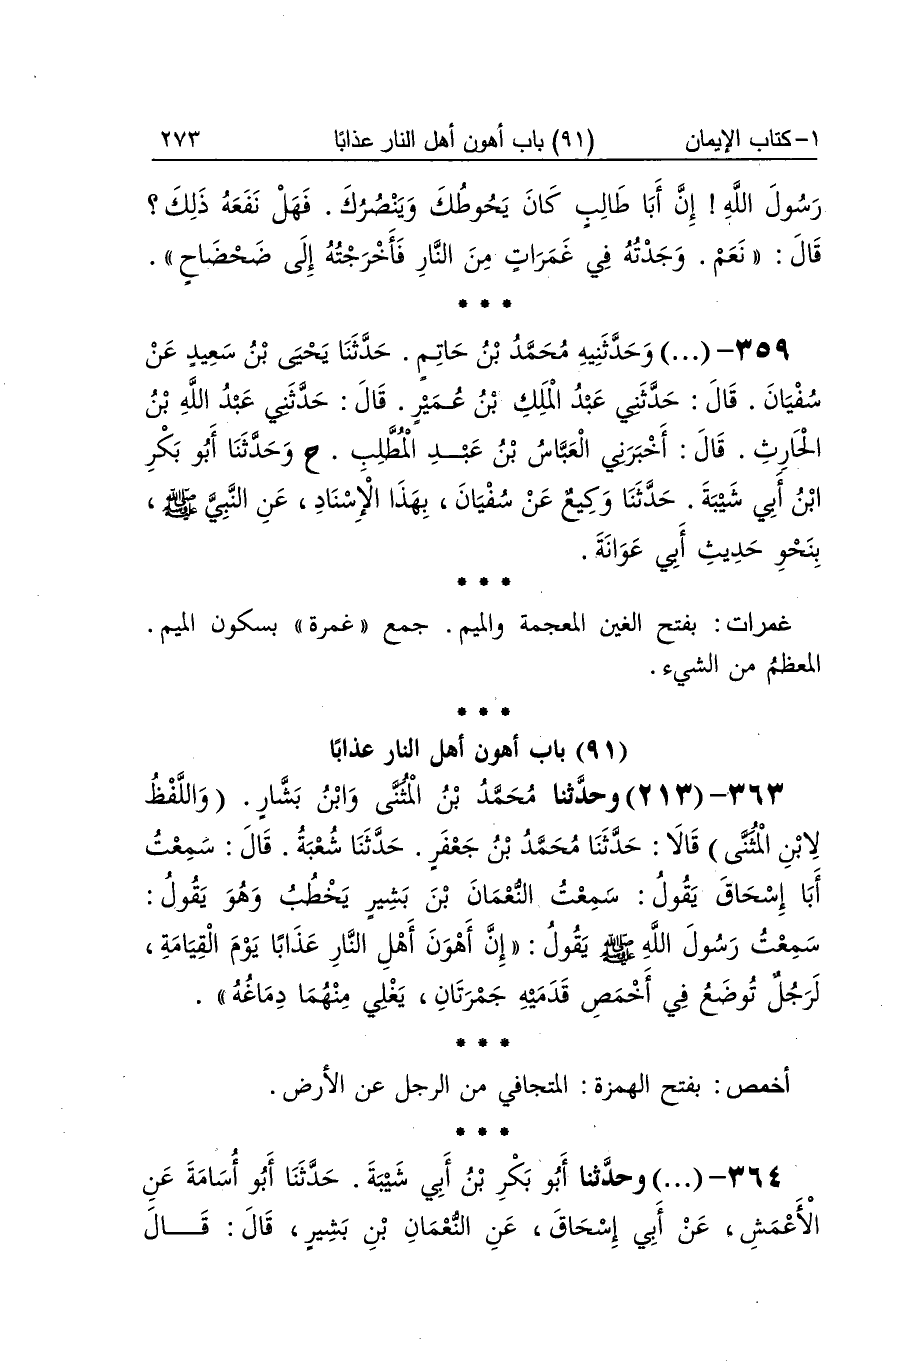 ١- كتاب الإيمان (٩١) باب أهون أهل النار عذابًا ٢٧٣
رَسُولَ اللَّهِ ! إِنَّ أَبَا طَالِبٍ كَانَ يَحُوطُكَ وَيَنْصُرُكَ . فَهَلْ نَفَعَهُ ذَلِكَ ؟
قَالَ : « نَعَمْ . وَجَدْتُهُ فِي غَمَرَاتٍ مِنَ النَّارِ فَأَخْرَجْتُهُ إِلَى ضَحْضَاحٍ » .
* * *
٣٥٩- (...) وَحَدَّثَنِيهِ مُحَمَّدُ بْنُ حَاتِمٍ . حَدَّثَنَا يَحْيَى بْنُ سَعِيدٍ عَنْ
سُفْيَانَ . قَالَ : حَدَّثَنِي عَبْدُ الْمَلِكِ بْنُ عُـمَيْرٍ . قَالَ : حَدَّثَنِي عَبْدُ اللَّهِ بْنُ
الْحَارِثِ . قَالَ : أَخْبَرَنِي الْعَبَّاسُ بْنُ عَبْـــدِ الْمُطَّلِبِ . ح وَحَدَّثَنَا أَبُو بَكْرِ
ابْنُ أَبِي شَيْبَةَ . حَدَّثَنَا وَكِيعٌ عَنْ سُفْيَانَ ، بِهَذَا الْإِسْنَادِ ، عَنِ النَّبِيِّ ﷺ ،
بِنَحْوِ حَدِيثِ أَبِي عَوَانَةَ .
* * *
غمرات : بفتح الغين المعجمة والميم . جمع « غمرة » بسكون الميم .
المعظمُ من الشيء .
* * *
(٩١) باب أهون أهل النار عذابًا
٣٦٣- (٢١٣) وحدَّثنا مُحَمَّدُ بْنُ الْمُثَنَّى وَابْنُ بَشَّارٍ . ( وَاللَّفْظُ
لِابْنِ الْمُثَنَّى ) قَالَا : حَدَّثَنَا مُحَمَّدُ بْنُ جَعْفَرٍ . حَدَّثَنَا شُعْبَةُ . قَالَ : سَمِعْتُ
أَبَا إِسْحَاقَ يَقُولُ : سَمِعْتُ النُّعْمَانَ بْنَ بَشِيرٍ يَخْطُبُ وَهُوَ يَقُولُ :
سَمِعْتُ رَسُولَ اللَّهِ ﷺ يَقُولُ : « إِنَّ أَهْوَنَ أَهْلِ النَّارِ عَذَابًا يَوْمَ الْقِيَامَةِ ،
لَرَجُلٌ تُوضَعُ فِي أَخْمَصِ قَدَمَيْهِ جَمْرَتَانِ ، يَغْلِي مِنْهُمَا دِمَاغُهُ » .
* * *
أخمص : بفتح الهمزة : المتجافي من الرجل عن الأرض .
* * *
٣٦٤- (...) وحدَّثنا أَبُو بَكْرِ بْنُ أَبِي شَيْبَةَ . حَدَّثَنَا أَبُو أُسَامَةَ عَنِ
الْأَعْمَشِ ، عَنْ أَبِي إِسْحَاقَ ، عَنِ النُّعْمَانِ بْنِ بَشِيرٍ ، قَالَ : قَـــالَ